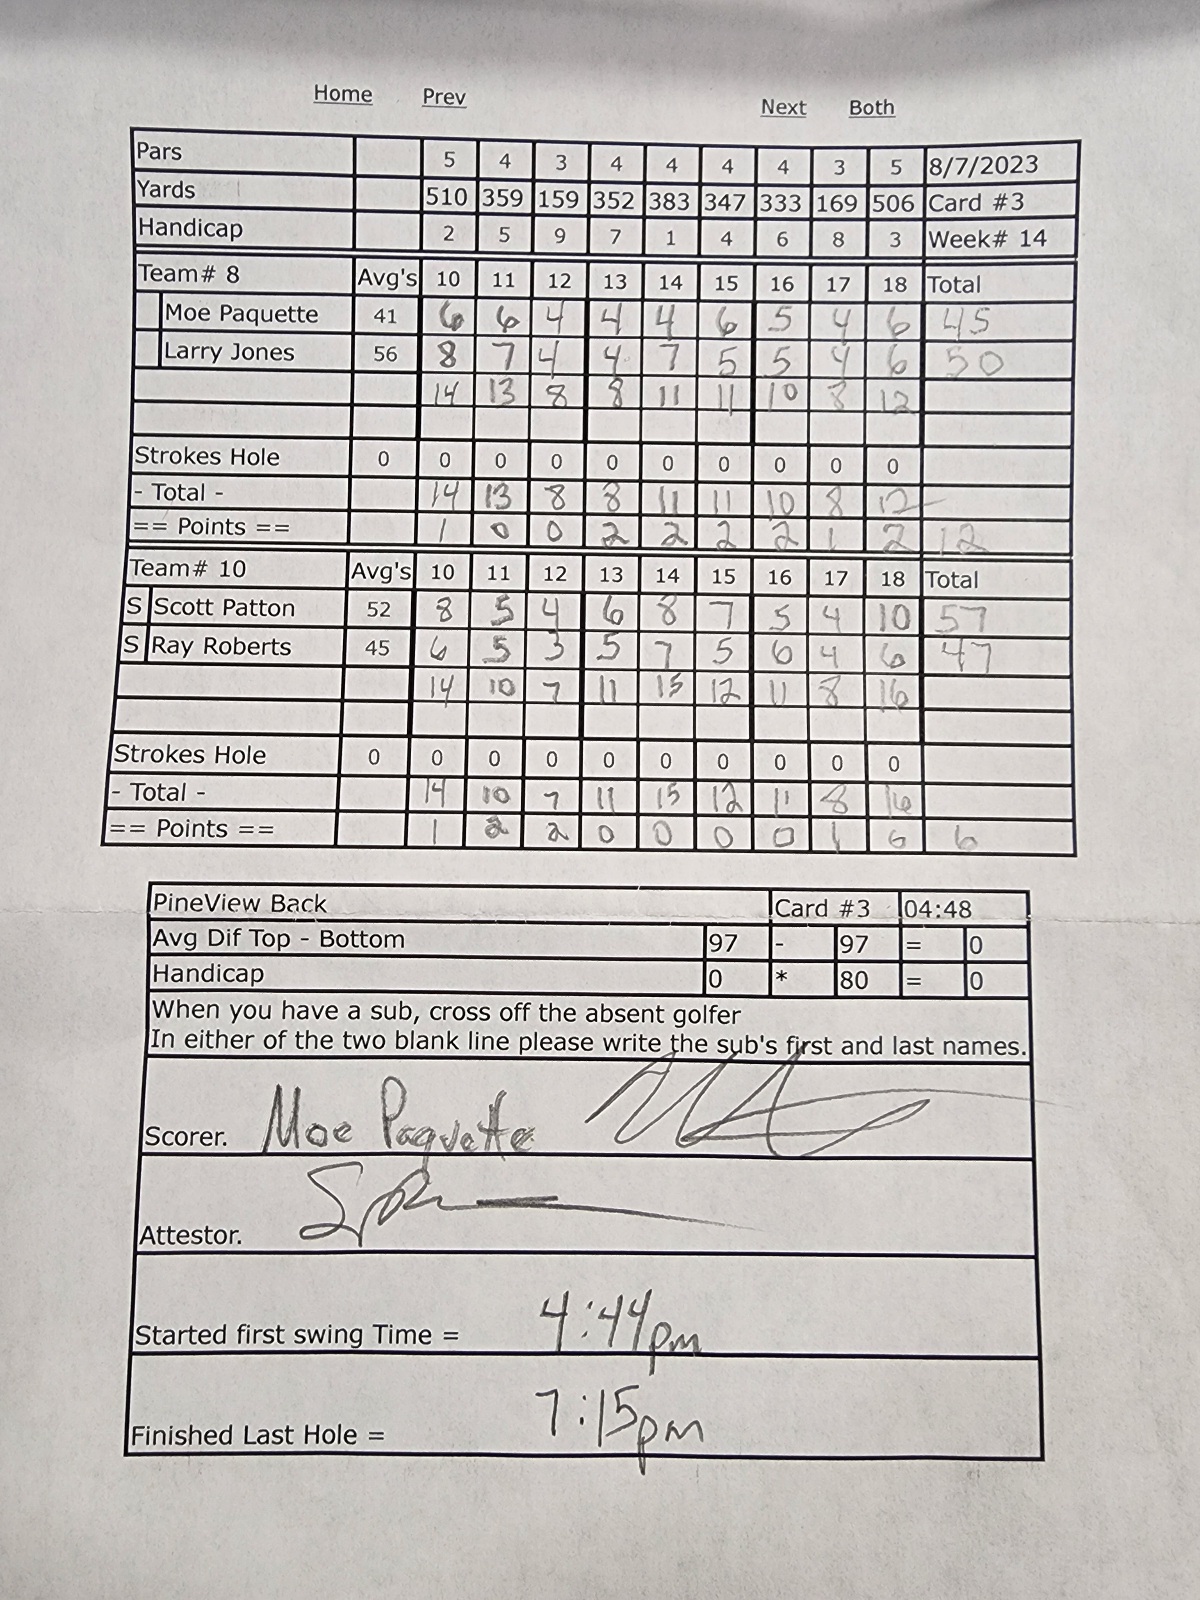 Home Prev Next Both
Pars 5 4 3 4 4 4 4 3 5 8/7/2023
Yards 510 359 159 352 383 347 333 169 506 Card #3
Handicap 2 5 9 7 1 4 6 8 3 Week# 14
Team# 8 Avg's 10 11 12 13 14 15 16 17 18 Total
Moe Paquette 41 6 6 4 4 4 6 5 4 6 45
Larry Jones 56 8 7 4 4 7 5 5 4 6 50
14 13 8 8 11 11 10 8 12
Strokes Hole 0 0 0 0 0 0 0 0 0 0
- Total - 14 13 8 8 11 11 10 8 12
== Points == 1 0 0 2 2 2 2 1 2 12
Team# 10 Avg's 10 11 12 13 14 15 16 17 18 Total
S Scott Patton 52 8 5 4 6 8 7 5 4 10 57
S Ray Roberts 45 6 5 3 5 7 5 6 4 6 47
14 10 7 11 15 12 11 8 16
Strokes Hole 0 0 0 0 0 0 0 0 0 0
- Total - 14 10 7 11 15 12 11 8 16
== Points == 1 2 2 0 0 0 0 1 0 6
PineView Back Card #3 04:48
Avg Dif Top - Bottom 97 - 97 = 0
Handicap 0 * 80 = 0
When you have a sub, cross off the absent golfer
In either of the two blank line please write the sub's first and last names.
Scorer. Moe Paquette
Attestor.
Started first swing Time = 4:44pm
Finished Last Hole = 7:15pm